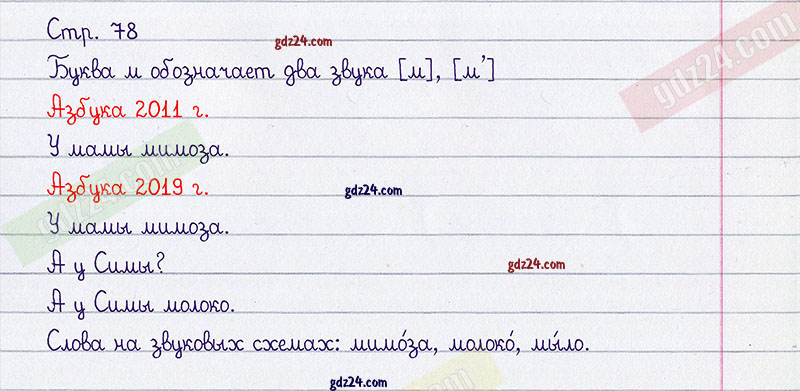 Стр. 78
gdz24.com
Буква м обозначает два звука [м], [м’]
gdz24.com
Азбука 2011 г.
У мамы мимоза.
Азбука 2019 г.
gdz24.com
gdz24.com
У мамы мимоза.
А у Симы?
gdz24.com
А у Симы молоко.
Слова на звуковых схемах: мимо́за, молоко́, мы́ло.
gdz24.com